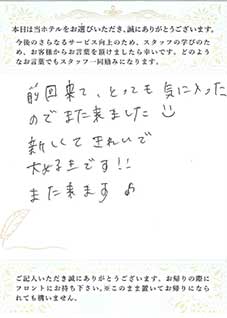 本日は当ホテルをお選びいただき、誠にありがとうございます。
今後のさらなるサービス向上のため、スタッフの学びのため、お客様からお言葉を頂けましたら幸いです。どのようなお言葉でもスタッフ一同励みになります。
前回来て、とっても気に入った
のでまた来ました
新しくてきれいで
大好きです!!
また来ます♪
ご記入いただき誠にありがとうございます。お帰りの際に
フロントにお持ち下さい。※このまま置いてお帰りになら
れても構いません。